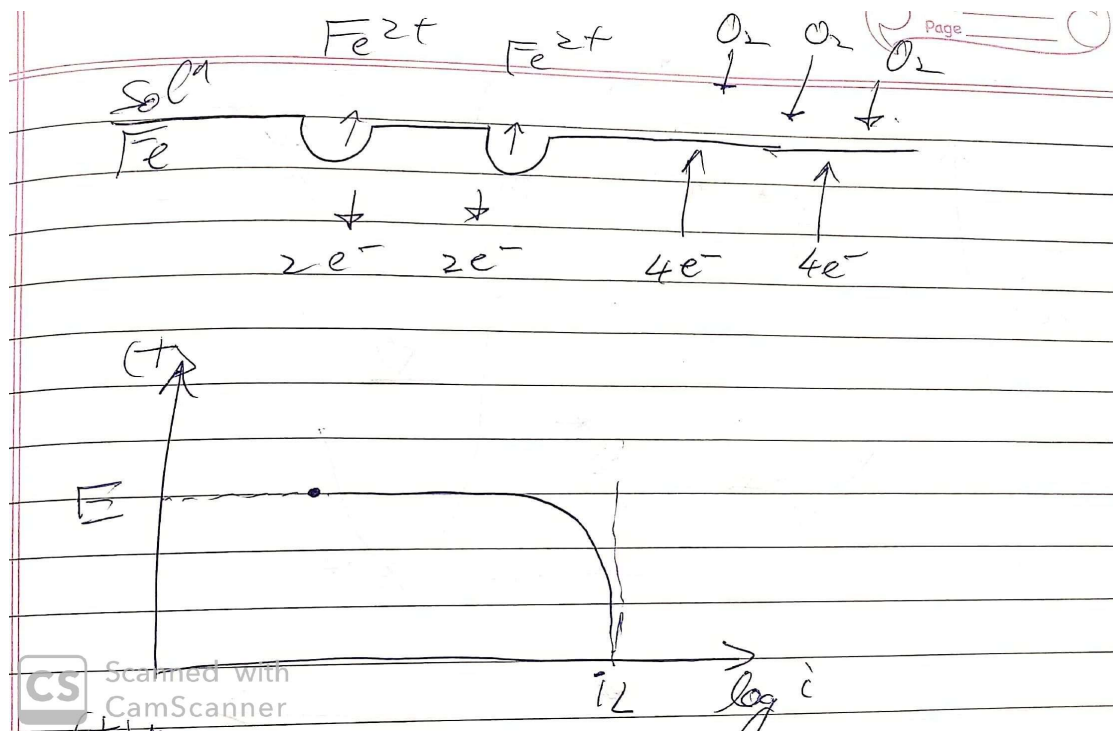 Page
Fe²⁺ Fe²⁺ O₂ O₂ O₂
Solⁿ
Fe
2e⁻ 2e⁻ 4e⁻ 4e⁻
(+)
E
iL log i
CS Scanned with
CamScanner